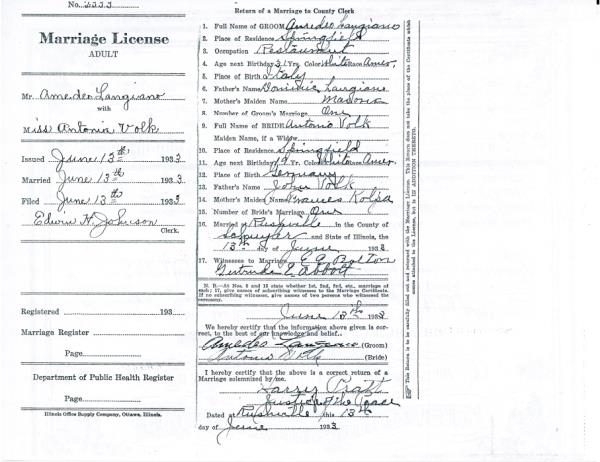 No. 5333
Marriage License
ADULT
Mr. Amedeo Langiano
with
Miss Antonia Volk
Issued June 13th 1933
Married June 13th 1933
Filed June 13th 1933
Edwin H. Johnson
Clerk.
Registered 193
Marriage Register
Page
Department of Public Health Register
Page
Illinois Office Supply Company, Ottawa, Illinois.
Return of a Marriage to County Clerk
1. Full Name of GROOM Amedeo Langiano
2. Place of Residence Springfield
3. Occupation Restaurant
4. Age next Birthday 31 Yrs. Color White Race Amer.
5. Place of Birth Italy
6. Father's Name Dominic Langiano
7. Mother's Maiden Name
8. Number of Groom's Marriage One
9. Full Name of BRIDE Antonio Volk
Maiden Name, if a Widow
10. Place of Residence Springfield
11. Age next Birthday 19 Yr. Color White Race Amer.
12. Place of Birth Germany
13. Father's Name John Volk
14. Mother's Maiden Name Frances
15. Number of Bride's Marriage One
16. Married at Rushville in the County of
Schuyler and State of Illinois, the
13th day of June 1933
17. Witnesses to Marriage E. A. Bolton
Gertrude E. Abbott
N. B.—At Nos. 8 and 15 state whether 1st, 2nd, 3rd, etc., marriage of
each; 17, give names of subscribing witnesses to the Marriage Certificate.
If no subscribing witnesses, give names of two persons who witnessed the
ceremony.
June 13th 1933
We hereby certify that the information above given is cor-
rect, to the best of our knowledge and belief.
Amedeo Langiano (Groom)
Antonia Volk (Bride)
I hereby certify that the above is a correct return of a
Marriage solemnized by me.
Harry Pratt
Justice of the Peace
Dated at Rushville this 13th
day of June 1933
This Return is to be carefully filled out and returned with the Marriage License. This Return does not take the place of the Certificate which
comes attached to the License, but is IN ADDITION THERETO.